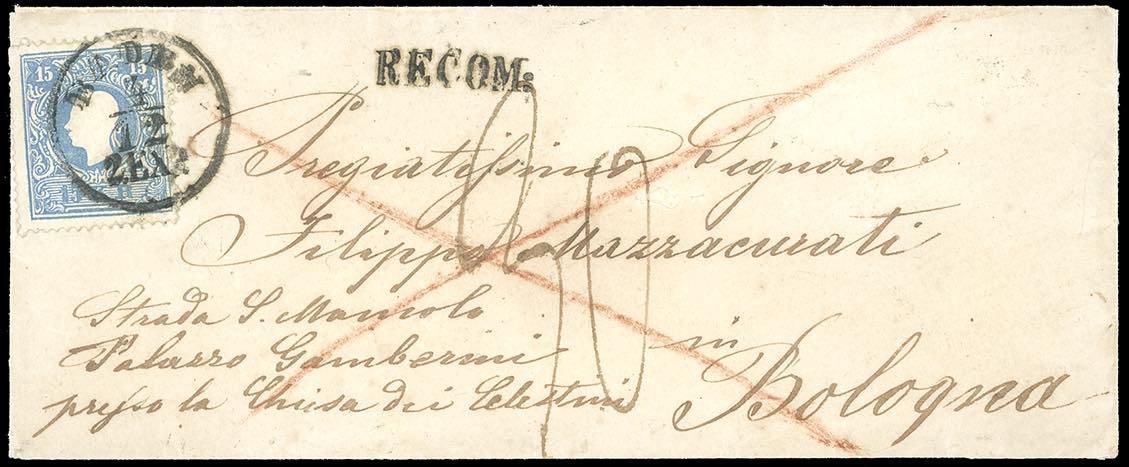 15 15
BADEN
1
12
RECOM:
Pregiatissimo Signore
Filippo Mazzacurati
Strada S. Mamolo
Palazzo Gamberini
in
presso la Chiesa dei Celestini
Bologna